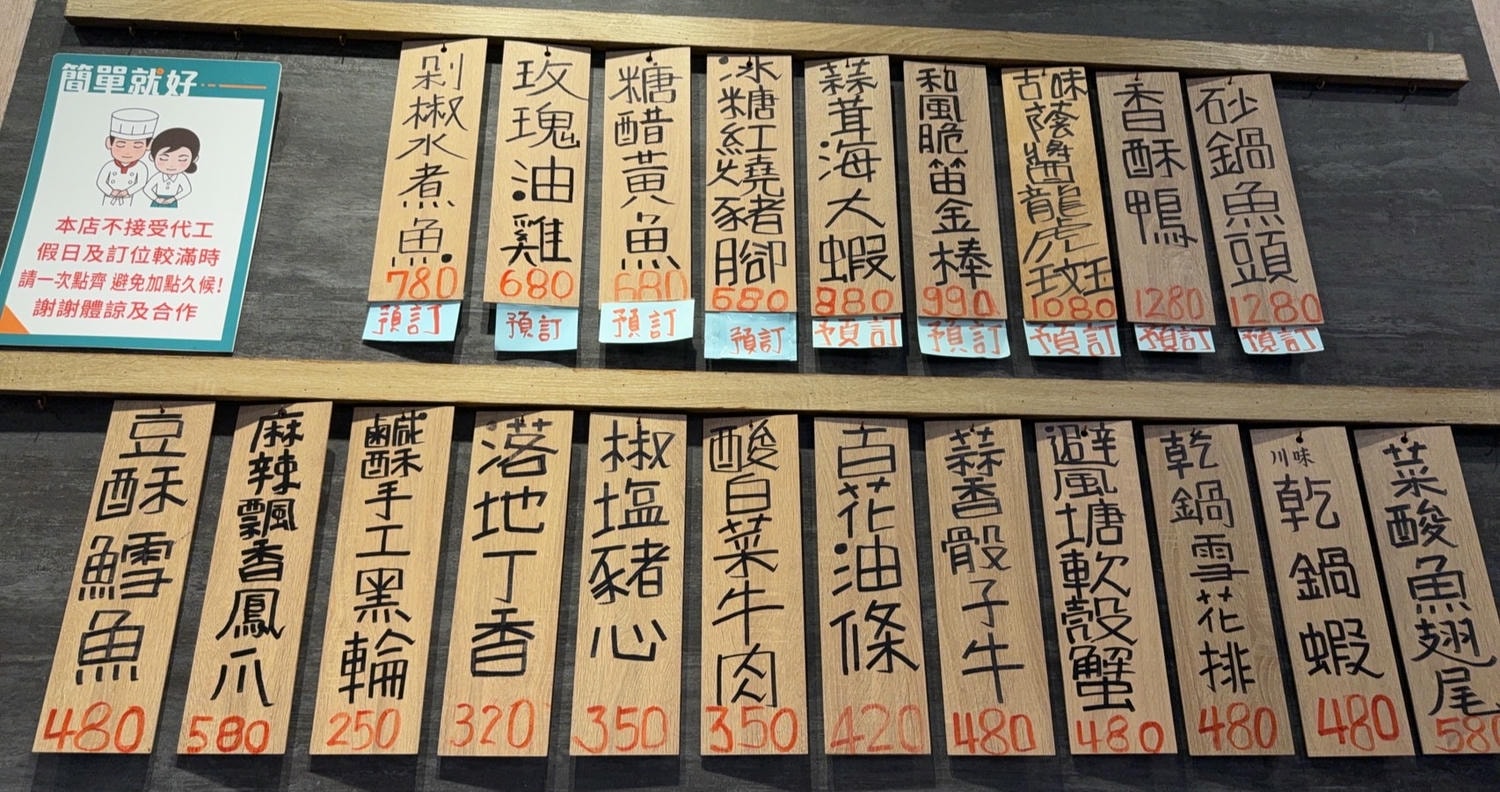 簡單就好
本店不接受代工
假日及訂位較滿時
請一次點齊 避免加點久候!
謝謝體諒及合作
剁椒水煮魚
780
預訂
玫瑰油雞
680
預訂
糖醋黃魚
680
預訂
冰糖紅燒豬腳
580
預訂
蒜茸海大蝦
880
預訂
和風脆笛金棒
990
預訂
古味蔭醬龍虎斑
1080
預訂
香酥鴨
1280
預訂
砂鍋魚頭
1280
預訂
豆酥鱈魚
480
麻辣飄香鳳爪
580
鹹酥手工黑輪
250
落地丁香
320
椒塩豬心
350
酸白菜牛肉
350
百花油條
420
蒜香骰子牛
480
避風塘軟殼蟹
480
乾鍋雪花排
480
川味乾鍋蝦
480
菜酸魚翅尾
580